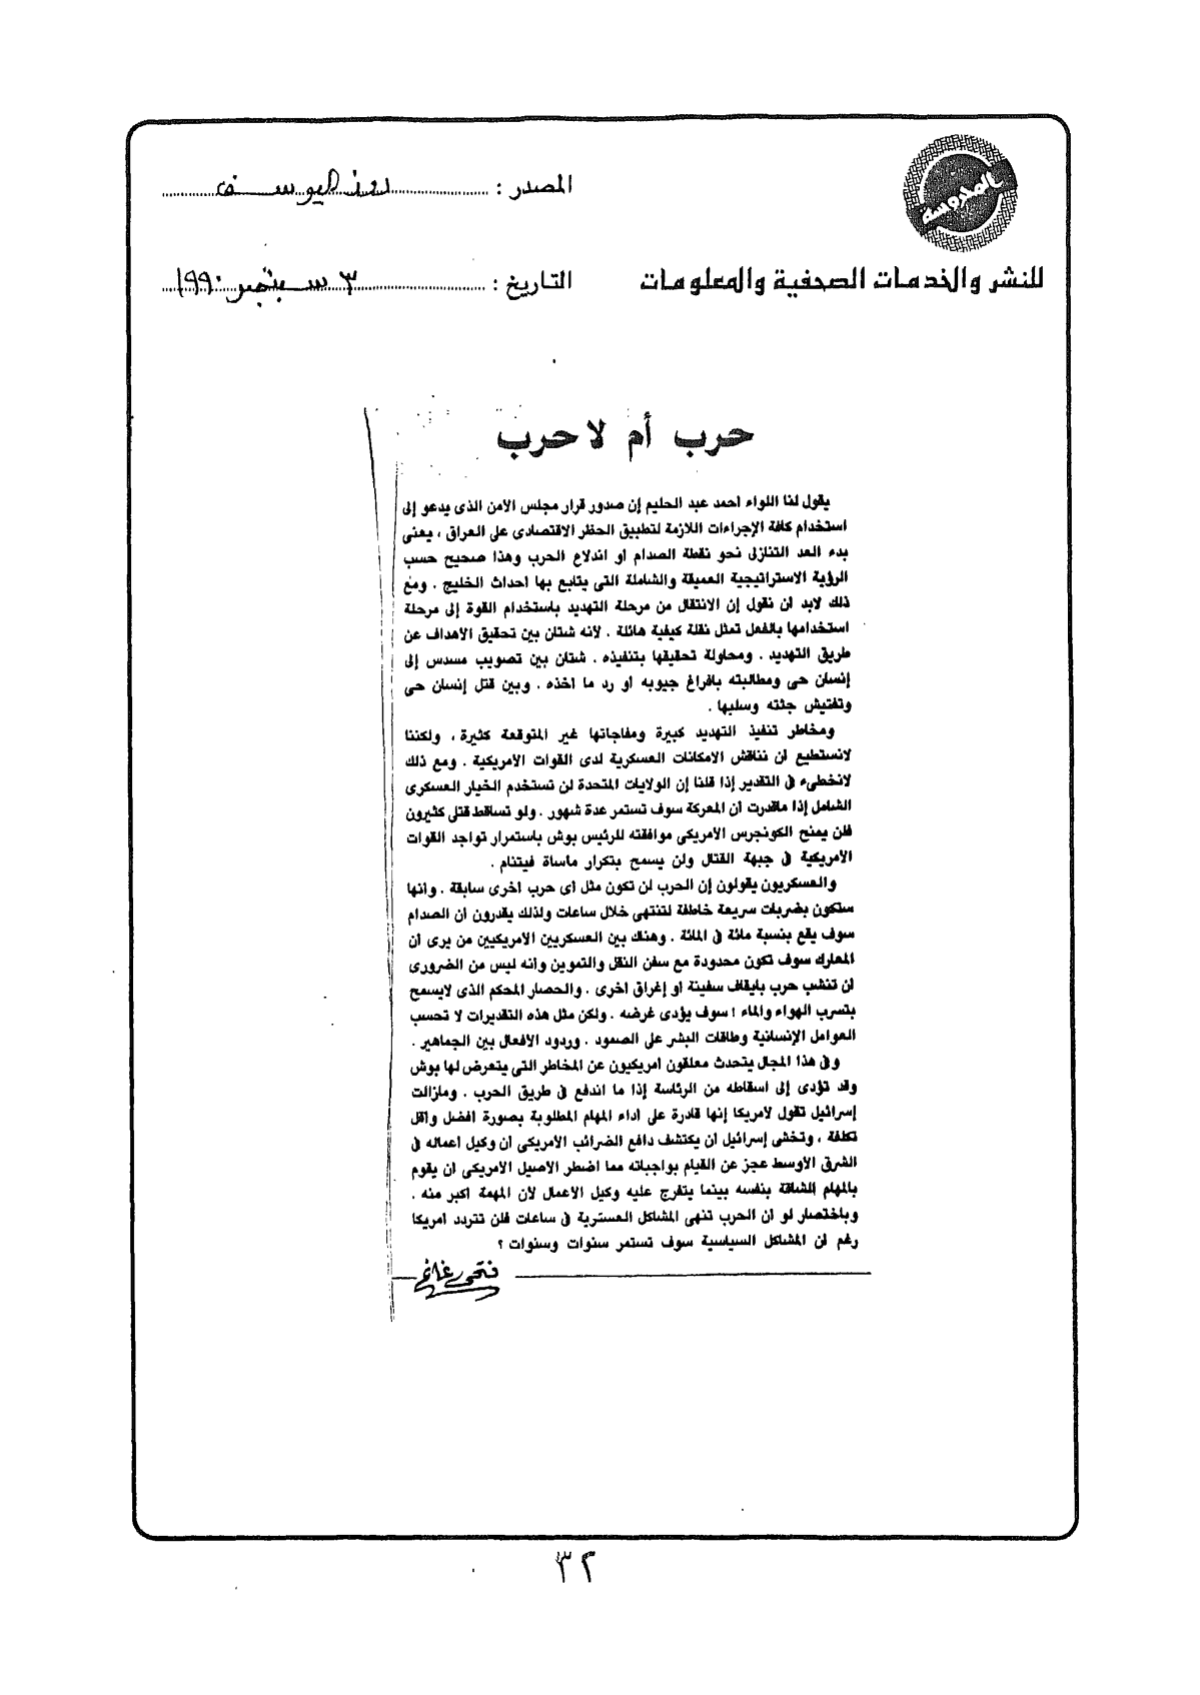 المحروسة
المصدر : روز اليوسف
للنشر والخدمات الصحفية والمعلومات
التاريخ : ٣ سبتمبر ١٩٩٠
حرب أم لا حرب
يقول لنا اللواء احمد عبد الحليم إن صدور قرار مجلس الأمن الذى يدعو إلى
استخدام كافة الإجراءات اللازمة لتطبيق الحظر الاقتصادى على العراق ، يعنى
بدء العد التنازلى نحو نقطة الصدام او اندلاع الحرب وهذا صحيح حسب
الرؤية الاستراتيجية العميقة والشاملة التى يتابع بها احداث الخليج . ومع
ذلك لابد ان نقول إن الانتقال من مرحلة التهديد باستخدام القوة إلى مرحلة
استخدامها بالفعل تمثل نقلة كيفية هائلة . لأنه شتان بين تحقيق الأهداف عن
طريق التهديد . ومحاولة تحقيقها بتنفيذه . شتان بين تصويب مسدس إلى
إنسان حى ومطالبته بافراغ جيوبه او رد ما اخذه . وبين قتل إنسان حى
وتفتيش جثته وسلبها .
ومخاطر تنفيذ التهديد كبيرة ومفاجاتها غير المتوقعة كثيرة ، ولكننا
لانستطيع ان نناقش الامكانات العسكرية لدى القوات الأمريكية . ومع ذلك
لانخطىء فى التقدير إذا قلنا إن الولايات المتحدة لن تستخدم الخيار العسكرى
الشامل إذا ماقدرت ان المعركة سوف تستمر عدة شهور . ولو تساقط قتلى كثيرون
فلن يمنح الكونجرس الأمريكى موافقته للرئيس بوش باستمرار تواجد القوات
الأمريكية فى جبهة القتال ولن يسمح بتكرار ماساة فيتنام .
والعسكريون يقولون إن الحرب لن تكون مثل اى حرب اخرى سابقة . وانها
ستكون بضربات سريعة خاطفة لتنتهى خلال ساعات ولذلك يقدرون ان الصدام
سوف يقع بنسبة مائة فى المائة . وهناك بين العسكريين الأمريكيين من يرى ان
المعارك سوف تكون محدودة مع سفن النقل والتموين وانه ليس من الضرورى
ان تنشب حرب بايقاف سفينة او إغراق اخرى . والحصار المحكم الذى لايسمح
بتسرب الهواء والماء ! سوف يؤدى غرضه . ولكن مثل هذه التقديرات لا تحسب
العوامل الإنسانية وطاقات البشر على الصمود . وردود الأفعال بين الجماهير .
وفى هذا المجال يتحدث معلقون امريكيون عن المخاطر التى يتعرض لها بوش
وقد تؤدى إلى اسقاطه من الرئاسة إذا ما اندفع فى طريق الحرب . ومازالت
إسرائيل تقول لأمريكا إنها قادرة على اداء المهام المطلوبة بصورة افضل واقل
تكلفة ، وتخشى إسرائيل ان يكتشف دافع الضرائب الأمريكى ان وكيل اعماله فى
الشرق الأوسط عجز عن القيام بواجباته مما اضطر الأصيل الأمريكى ان يقوم
بالمهام الشاقة بنفسه بينما يتفرج عليه وكيل الأعمال لأن المهمة اكبر منه .
وباختصار لو ان الحرب تنهى المشاكل العسترية فى ساعات فلن تتردد امريكا
رغم ان المشاكل السياسية سوف تستمر سنوات وسنوات ؟
فتحى غانم
٣٢